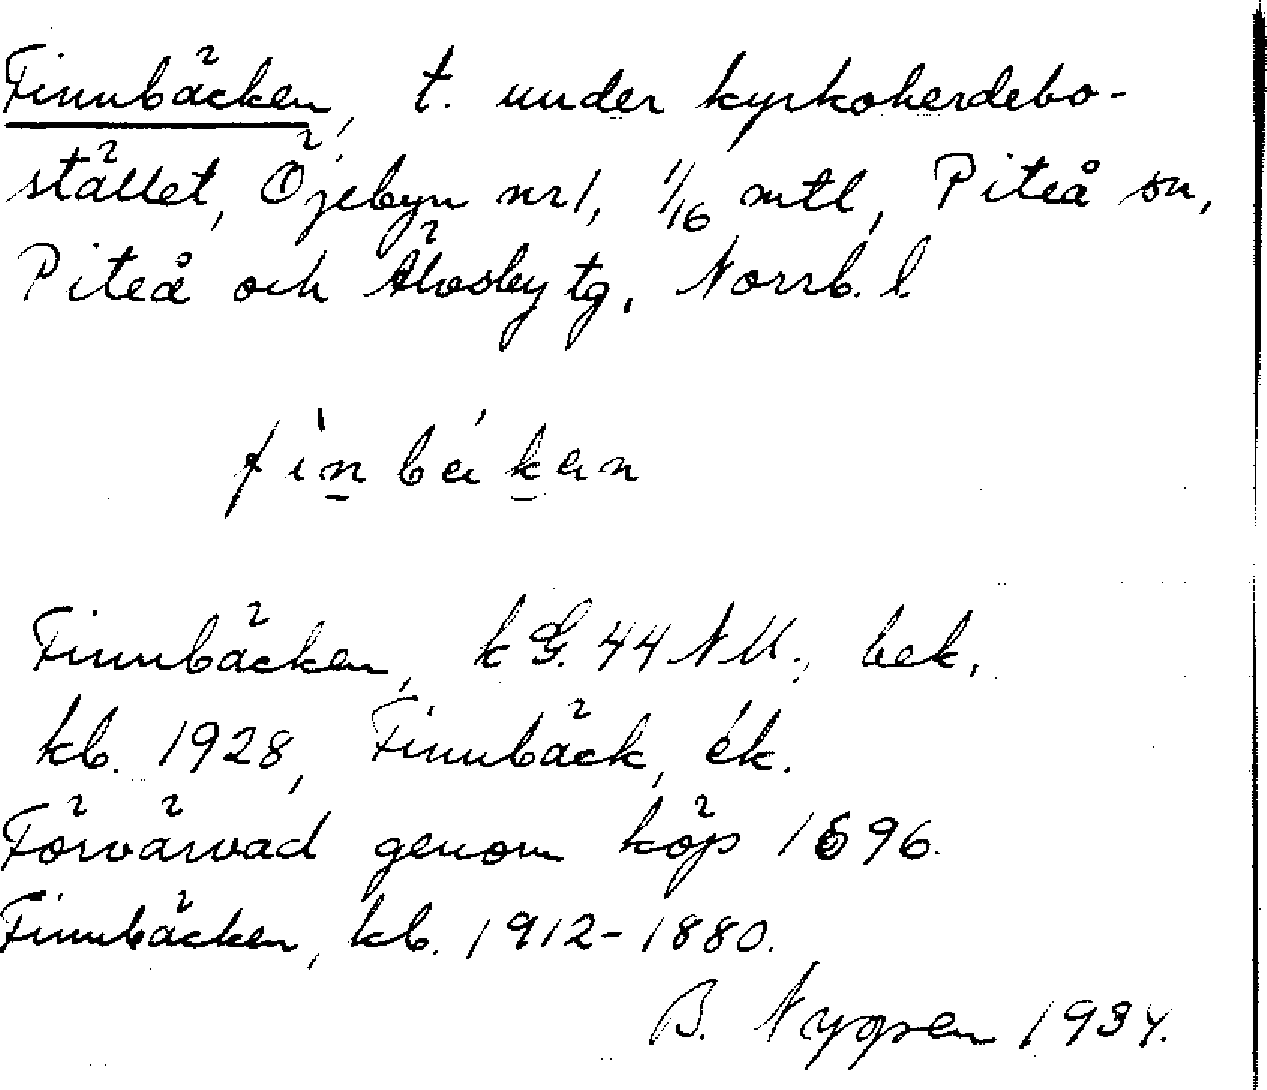 Finnbäcken, t. under kyrkoherdebo-
stället, Öjebyn nr 1, 1/16 mtl, Piteå sn,
Piteå och Älvsby tg, Norrb. l
Finnbäcken, k G. 44 NU., bek,
kb. 1928, Finnbäck, ék.
Förvärvad genom köp 1696.
Finnbäcken, kb. 1912-1880.
B. Nygren 1934.